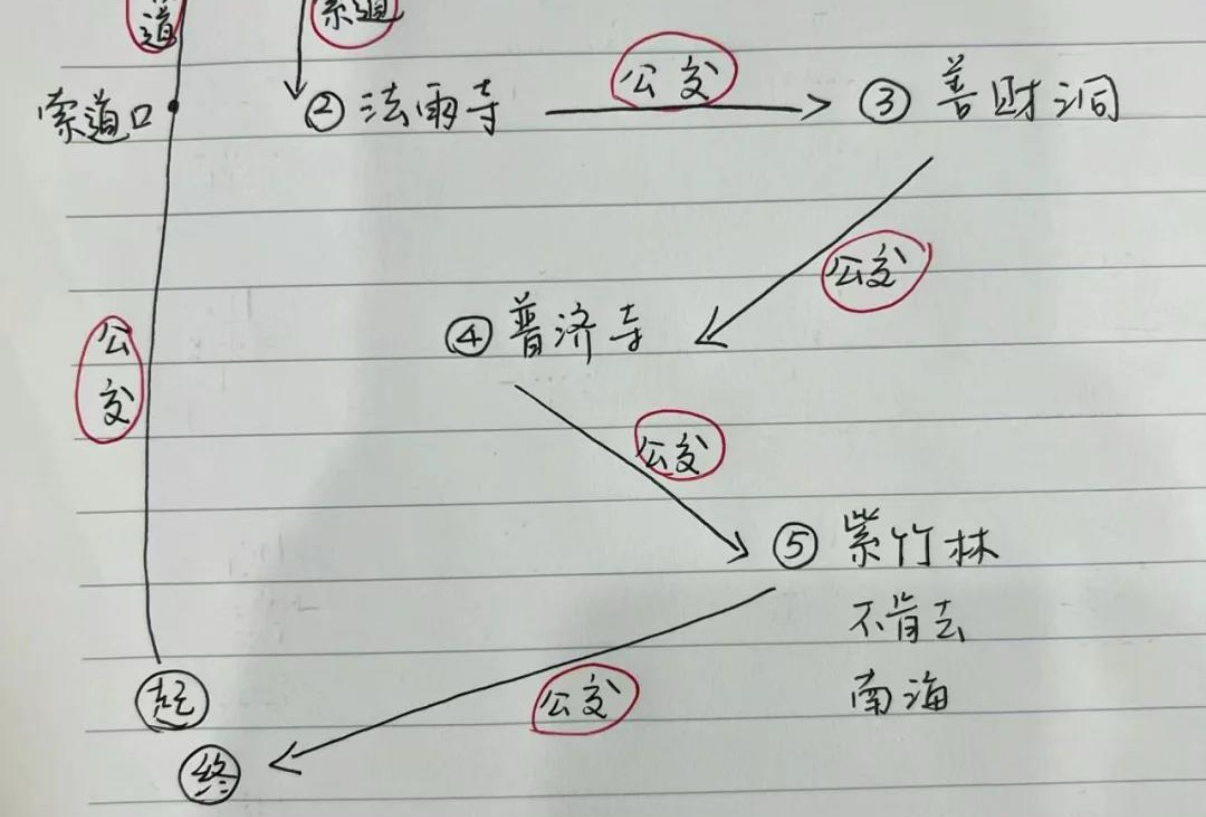 道
索道
索道口
②法雨寺
公交
③善财洞
公交
公交
④普济寺
公交
⑤紫竹林
不肯去
南海
公交
起
终